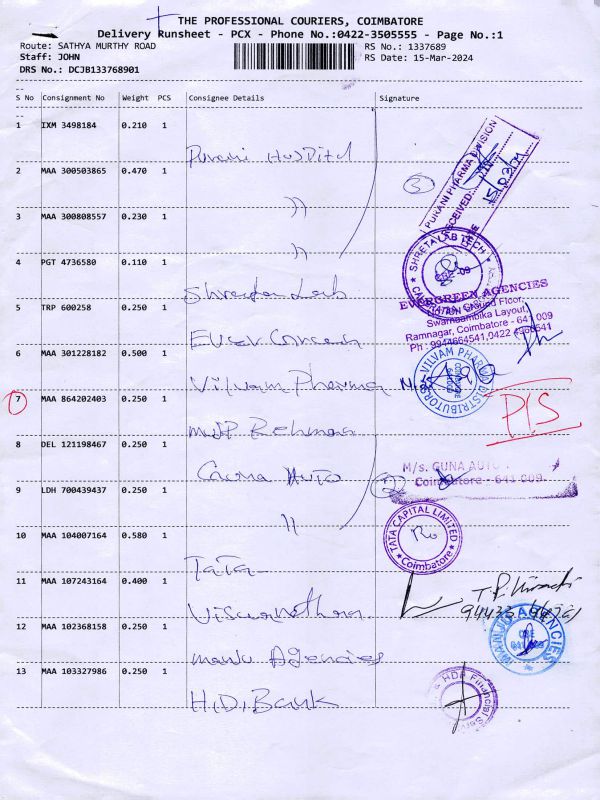 THE PROFESSIONAL COURIERS, COIMBATORE
Delivery Runsheet - PCX - Phone No.:0422-3505555 - Page No.:1
Route: SATHYA MURTHY ROAD
RS No.: 1337689
Staff: JOHN
RS Date: 15-Mar-2024
DRS No.: DCJB133768901
S No Consignment No Weight PCS Consignee Details Signature
1 IXM 3498184 0.210 1
Purani Hospital
PURANI PHARMA DIVISION
2 MAA 300503865 0.470 1
"
3
3 MAA 300808557 0.230 1
"
SHREYA LAB TECH
4 PGT 4736580 0.110 1
Shreya Lab
EVERGREEN AGENCIES
Ground Floor,
Swarnambika Layout,
Ramnagar, Coimbatore - 641 009
5 TRP 600258 0.250 1
Ever Green
6 MAA 301228182 0.500 1
Vilvam Pharma
VILVAM PHARMA DISTRIBUTORS
7 MAA 864202403 0.250 1
P/S
8 DEL 121198467 0.250 1
Guna Auto
M/s. GUNA AUTO
Coimbatore - 641 009.
9 LDH 700439437 0.250 1
"
2
10 MAA 104007164 0.580 1
Tata
TATA CAPITAL LIMITED
Coimbatore
11 MAA 107243164 0.400 1
Viswanathan
12 MAA 102368158 0.250 1
Manu Agencies
AGENCIES
13 MAA 103327986 0.250 1
H.D. Bank